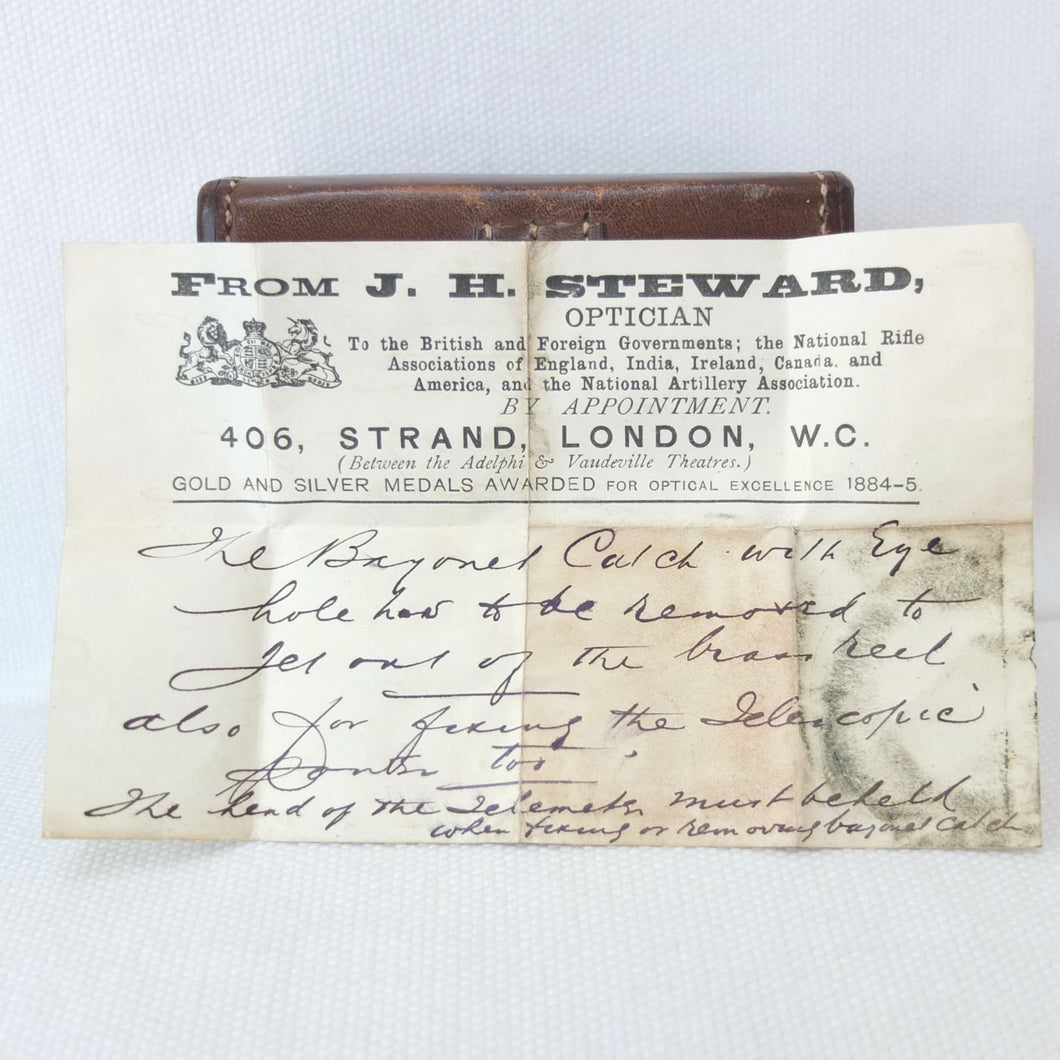 FROM J. H. STEWARD,
OPTICIAN
To the British and Foreign Governments; the National Rifle
Associations of England, India, Ireland, Canada. and
America, and the National Artillery Association.
BY APPOINTMENT.
406, STRAND, LONDON, W.C.
(Between the Adelphi & Vaudeville Theatres.)
GOLD AND SILVER MEDALS AWARDED FOR OPTICAL EXCELLENCE 1884-5.
The Bayonet Catch with Eye
hole has to be removed to
get out of the brass reel
also for fixing the Telescopic
too
The head of the Telemeter must be held
when fixing or removing bayonet catch